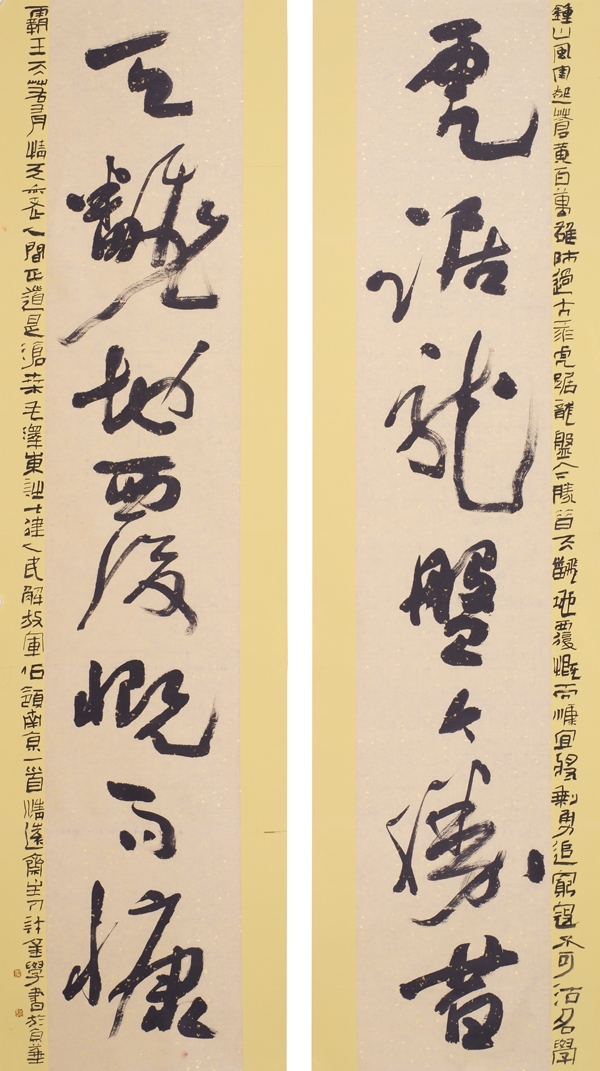 鍾山風雨起蒼黃百萬雄師過大江虎踞龍盤今勝昔天飜地覆慨而慷宜將剩勇追窮寇不可沽名學
虎踞龍盤今勝昔
天飜地覆慨而慷
霸王天若有情天亦老人間正道是滄桑毛澤東詩七律人民解放軍佔領南京一首清遠齋主計金學書於京華